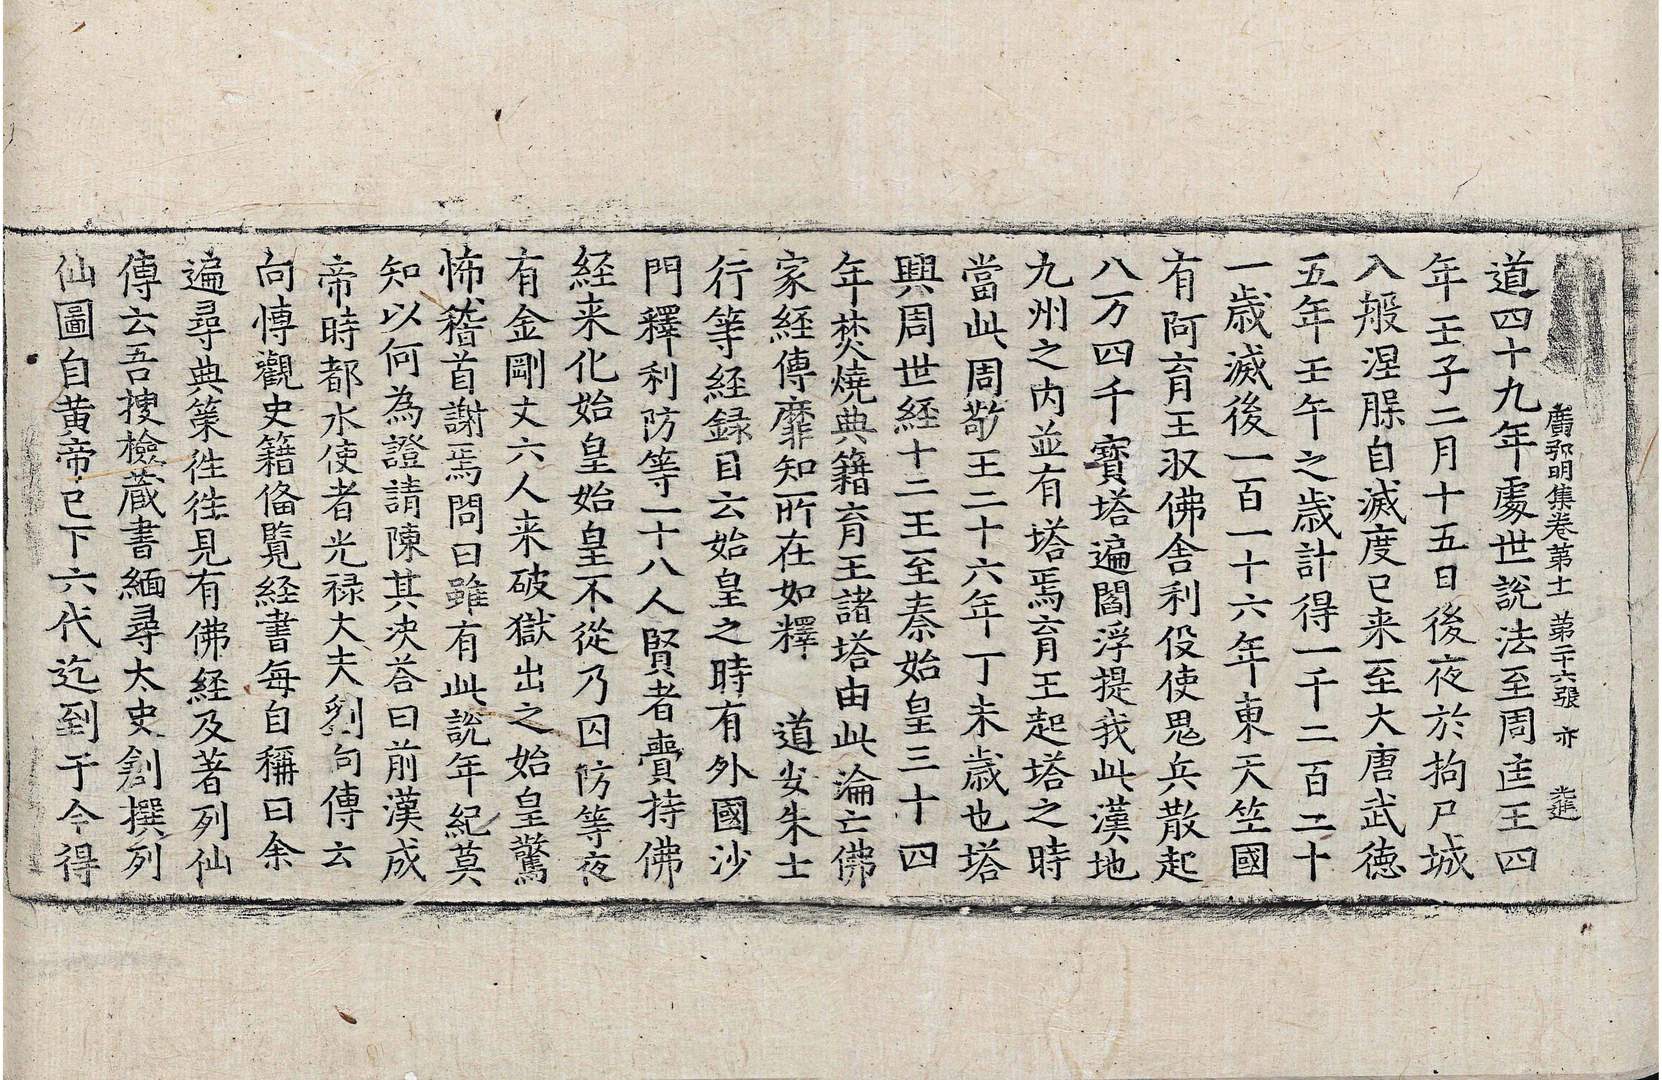 廣弘明集卷第十一 第二十六張 亦
道四十九年處世說法至周匡王四
年壬子二月十五日後夜於拘尸城
入般涅槃自滅度已来至大唐武德
五年壬午之歲計得一千二百二十
一歲滅後一百一十六年東天竺國
有阿育王収佛舍利役使鬼兵散起
八万四千寶塔遍閻浮提我此漢地
九州之內並有塔焉育王起塔之時
當此周敬王二十六年丁未歲也塔
興周世経十二王至秦始皇三十四
年焚燒典籍育王諸塔由此淪亡佛
家経傳靡知所在如釋 道安朱士
行等経録目云始皇之時有外國沙
門釋利防等一十八人賢者賷持佛
経来化始皇始皇不從乃囚防等夜
有金剛丈六人来破獄出之始皇驚
怖稽首謝焉問曰雖有此說年紀莫
知以何為證請陳其決荅曰前漢成
帝時都水使者光禄大夫劉向傳云
向博觀史籍俻覽経書每自稱曰余
遍尋典策徃徃見有佛経及著列仙
傳云吾搜檢蔵書緬尋太史創撰列
仙圖自黄帝已下六代迄到于今得